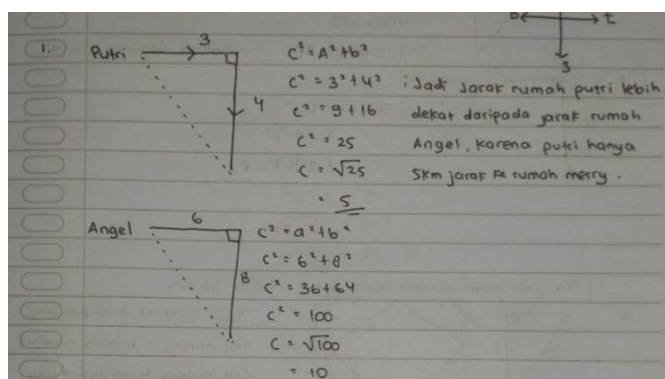 B t
S
1. Putri 3 4
C² = A² + b²
C² = 3² + 4²
C² = 9 + 16
C² = 25
C = √25
= 5
; Jadi Jarak rumah putri lebih
dekat daripada jarak rumah
Angel, karena putri hanya
5km jarak ke rumah merry.
Angel 6 8
C² = a² + b²
C² = 6² + 8²
C² = 36 + 64
C² = 100
C = √100
= 10